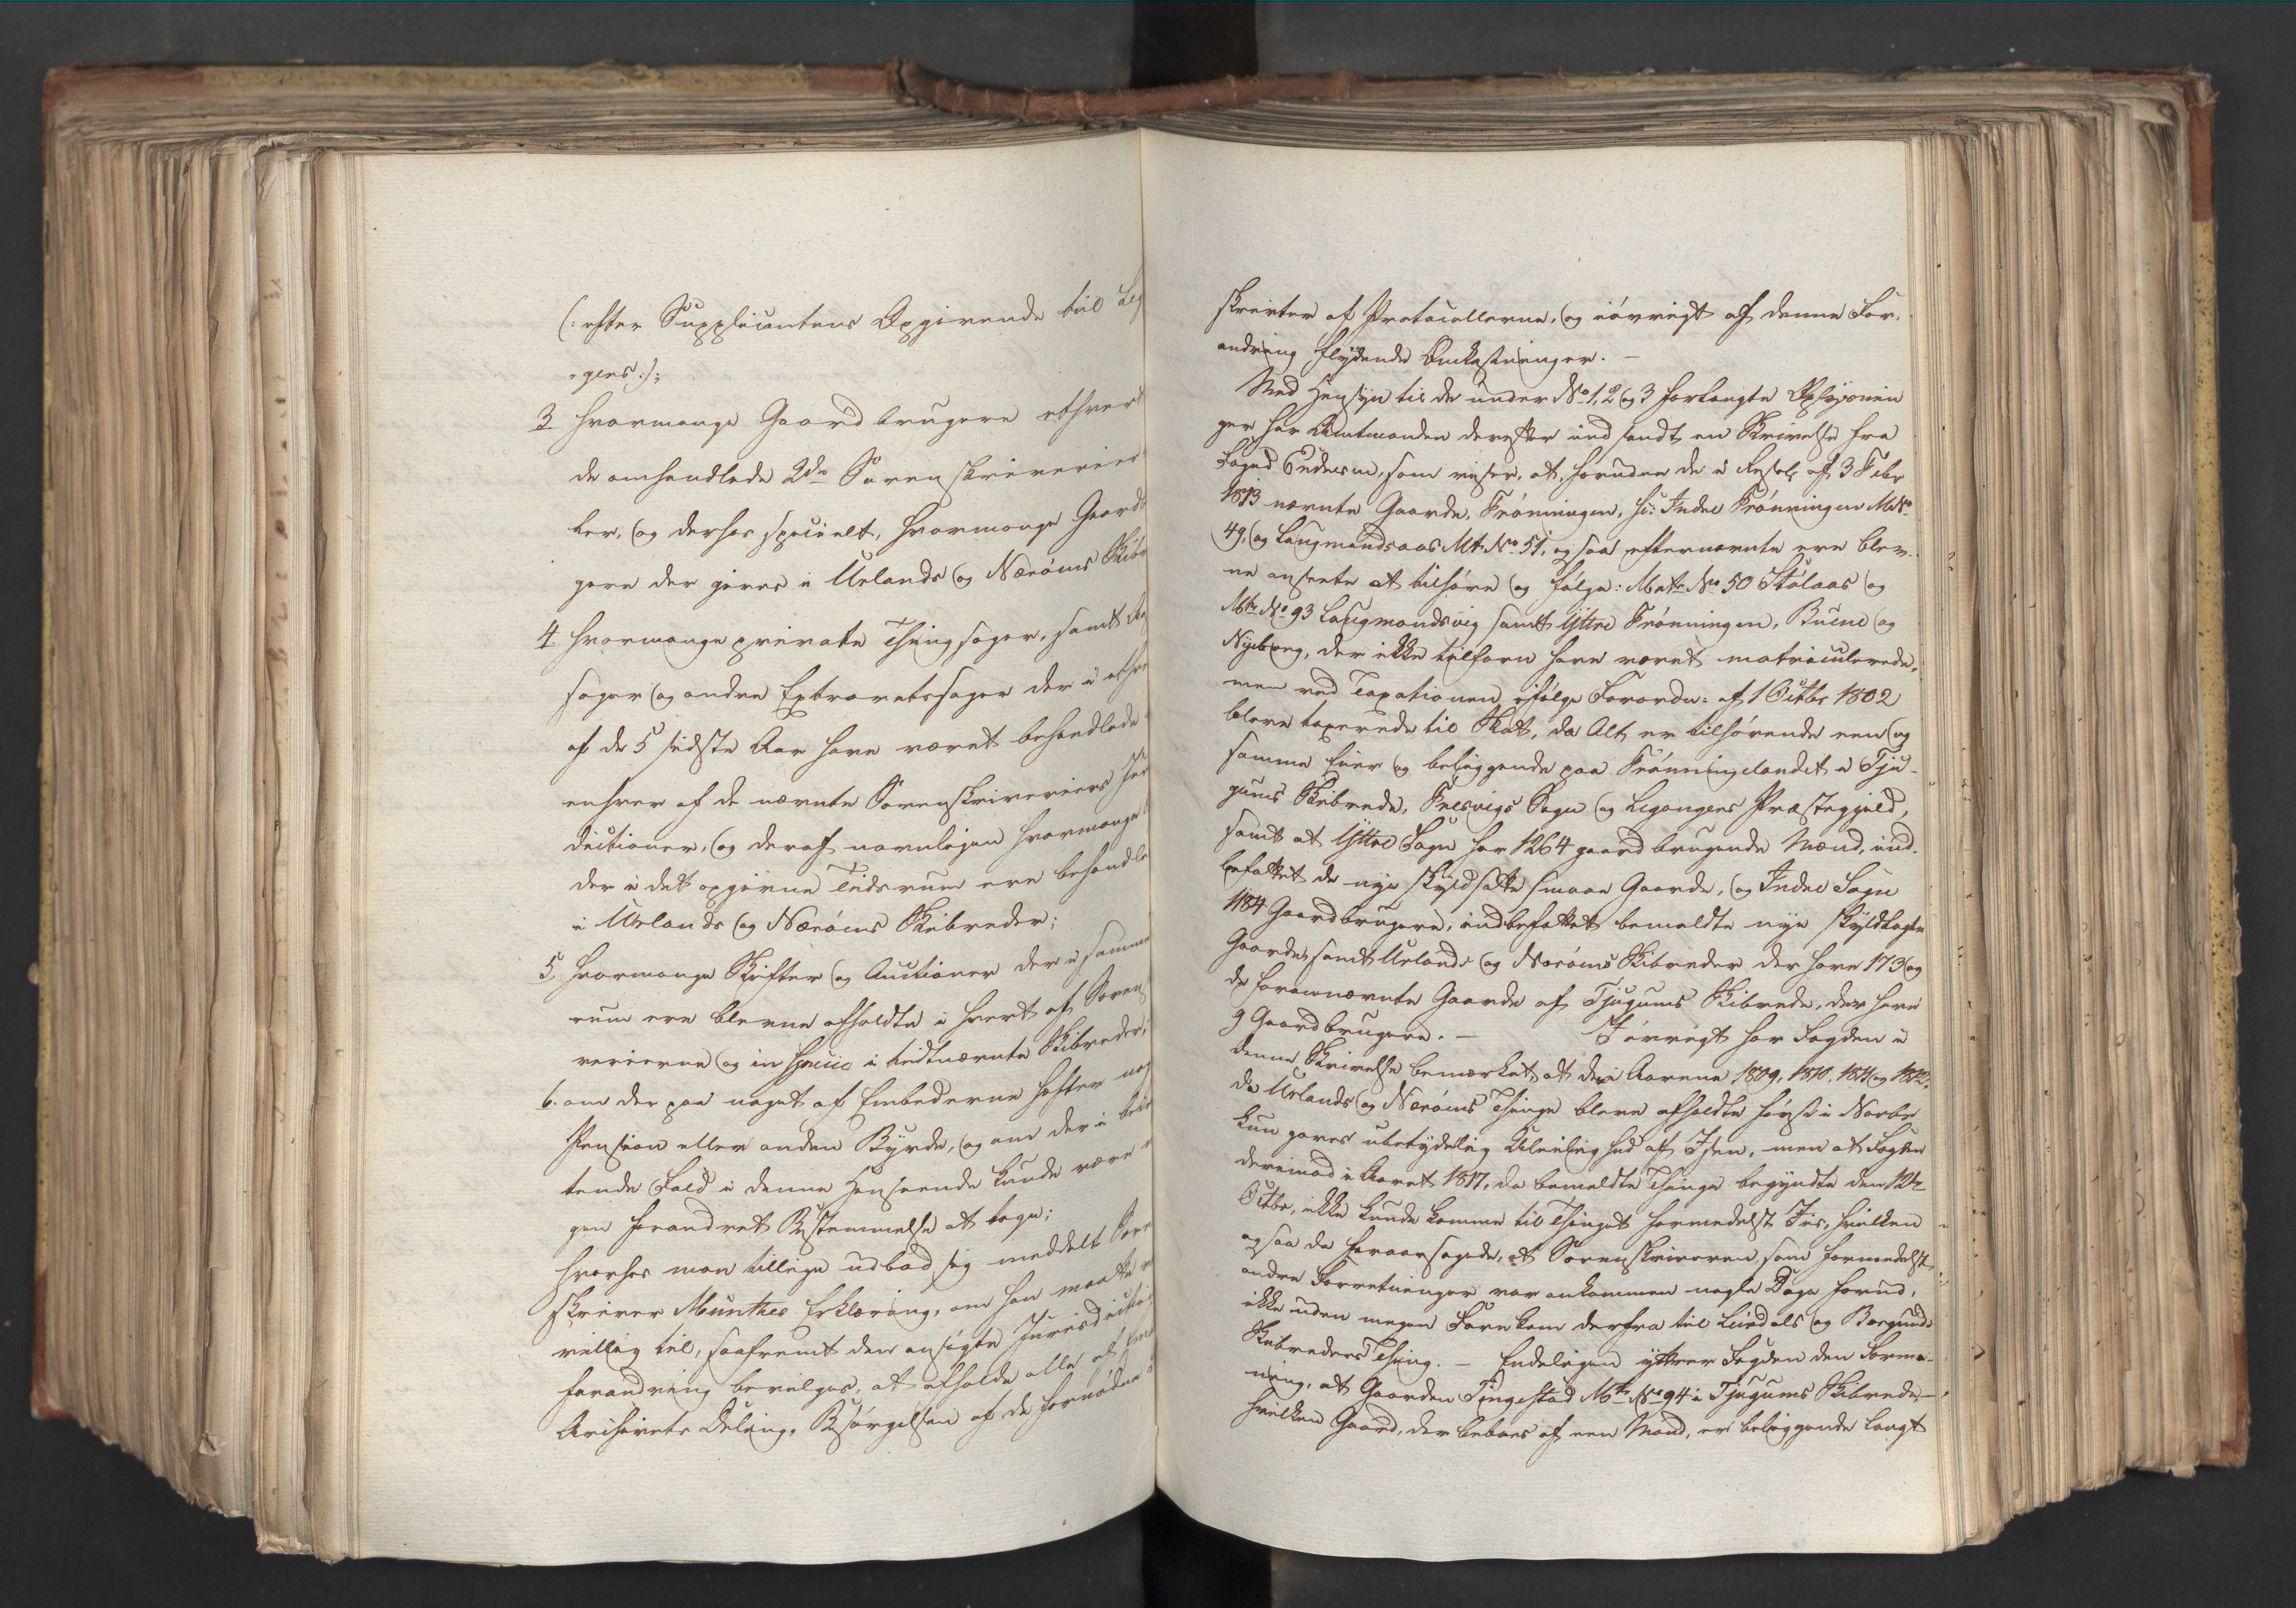 (: efter Supplicantens Opgivende til Leg
-gers :);
3. hvormange Gaardbrugere ethvert
de omhandlede 2de Sorenskriverier
ker, og derhos specielt, hvormange Gaard
gere der gives i Urlands og Nærøens Skibr
4. hvormange private Thingsager, samt
sager og andre Extraretssager der i ethve
af de 5 sidste Aar have været behandlede
enhver af de nævnte Sorenskriveriers Jur
dictioner, og deraf navnligen hvormange
der i det opgivne Tidsrum ere behandle
i Urlands og Nærøens Skibreder;
5. hvormange Skifter og Auctioner der i samme
rum ere blevne afholdte i hvert af Soren
verierne og in specie i tidtnævnte Skibreder;
6. om der paa noget af Embederne hefter nog
Pension eller anden Byrde, og om der i bekr
tende Fald i denne Henseende kunde være
gen forandret Bestemmelse at tage;
hvorhos man tillige udbad sig meddelt Sore
skriver Munthes Erklæring, om han maatte
villig til, saafremt den ansøgte Jurisdicti
forandring bevilges, at afholde alle af
Archivets Deling, Besørgelsen af de fornødne
skrivter af Protocollerne, og iøvrigt af denne For-
andring flydende Omkostninger. —
Med Hensyn til de under No 1, 2 og 3 forlangte Oplysnin
ger har Amtmanden derefter indsendt en Skrivelse fra
Foged, som viser, at, foruden de i Resol. af 3 Febr
1813 nævnte Gaarde, Frønningen, h: Indre Frønningen M.No
49, og Laugmandsaas Mt. No 51, ogsaa efternævnte ere blev-
ne ansete at tilhøre og følge: Mat. No 50 Stølaas og
Mt. No 93 Laugmandsvig samt Yttre Frønningen, Buene og
Nyeborg, der ikke tilforn have været matriculerede,
men ved Taxationen ifølge Forordn: af 1 Octbr 1802
bleve taxerede til Skat, da Alt er tilhørende een og
samme Eier og beliggende paa Frønningelandet i Tju-
gums Skibrede, Fresvigs Sogn og Leganger Præstegjeld,
samt at Yttre Sogn har 1264 gaardbrugende Mænd, ind-
befattet de nye skyldsatte smaae Gaarde, og Indre Sogn
1184 Gaardbrugere, indbefattet bemeldte nye skyldlagte
Gaarde, samt Urlands og Nærøens Skibreder der have 173 og
de forannævnte Gaarde af Tjugums Skibrede, der have
9 Gaardbrugere. — Iøvrigt har Fogden i
denne Skrivelse bemærket, at der i Aarene 1809, 1810, 1811 og 1812,
da Urlands og Nærøens Thinge bleve afholdte sidst i Novbr
kun gaves ubetydelig Uleilighed af Isen, men at Fogden
derimod i Aaret 1817, da bemeldte Thinge begyndte den 12te
Octbr, ikke kunde komme til Thinget formedelst Iis, hvilken
ogsaa da foraarsagede, at Sorenskriveren, som formedelst
andre Forretninger var ankommen nogle Dage forud,
ikke uden megen Fare kom derfra til Lierdals og Borgunds
Skibreders Thing. — Endeligen yttrer Fogden den Forme-
ning, at Gaarden Fingestad Mt. No 94 i Tjugums Skibrede, —
hvilken Gaard, der beboes af een Mand, er beliggende langt